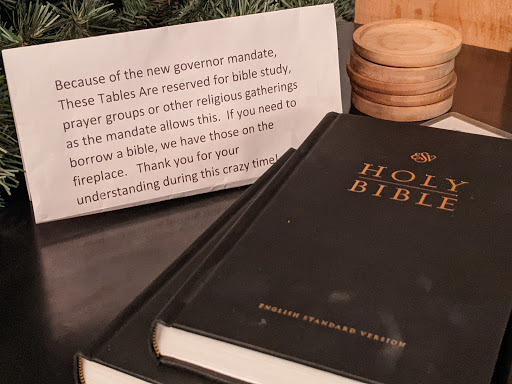 Because of the new governor mandate,
These Tables Are reserved for bible study,
prayer groups or other religious gatherings
as the mandate allows this.  If you need to
borrow a bible, we have those on the
fireplace.   Thank you for your
understanding during this crazy time!
ESV
HOLY
BIBLE
ENGLISH STANDARD VERSION